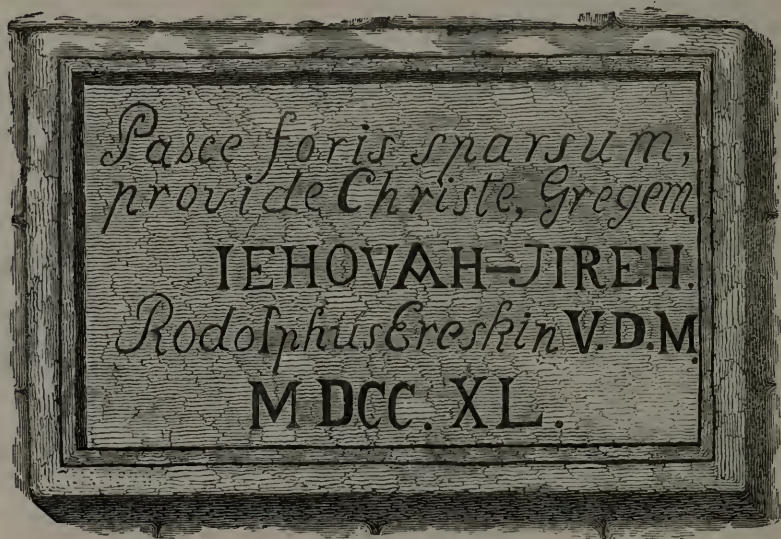 Pasce foris sparsum,
provide Christe, Gregem
IEHOVAH-JIREH.
Rodolphus Ereskin V.D.M.
M DCC. XL.